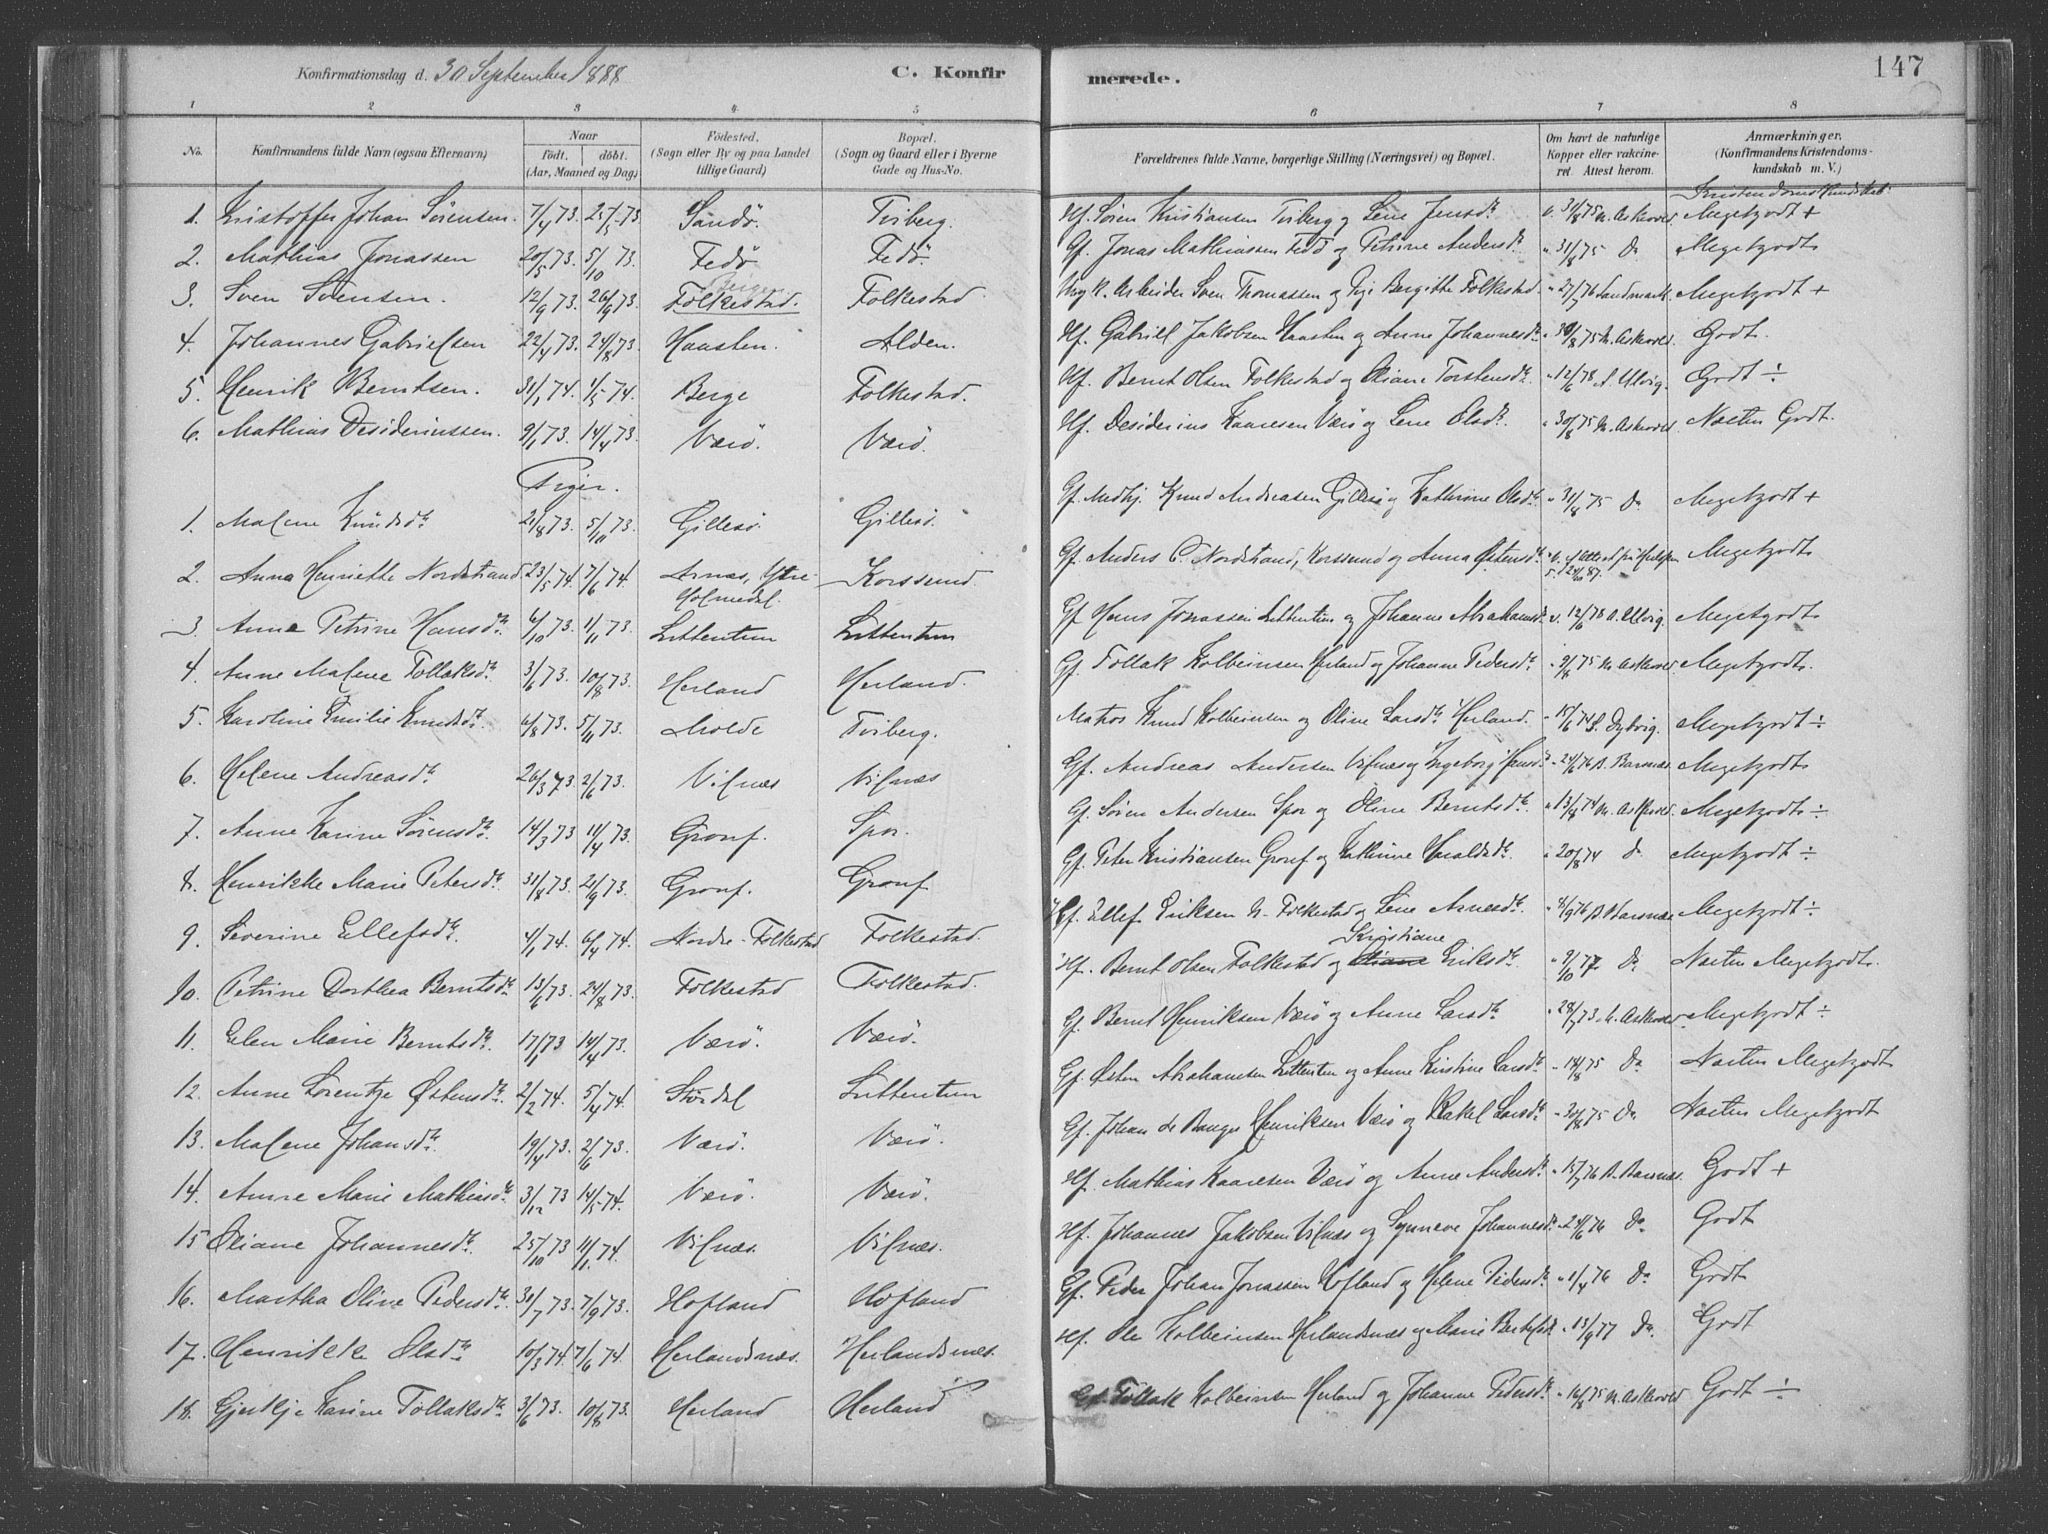 Konfirmationsdag d. 30 September 1888
C. Konfirmerede.
147
1 2 3 4 5 6 7 8
No. Konfirmandens fulde Navn (ogsaa Efternavn) Naar födt. döbt. (Aar, Maaned og Dag) Födested. (Sogn eller By og paa Landet tillige Gaard) Bopæl. (Sogn og Gaard eller i Byerne Gade og Hus-No. Forældrenes fulde Navne, borgerlige Stilling (Næringsvei) og Bopæl. Om havt de naturlige Kopper eller vakcineret Attest herom. Anmærkninger. (Konfirmandens Kristendomskundskab m. V.)
Kristendomskundskab
1. Kristoffer Johan Sörensen. 7/4 73. 25/5 73 Sandö. Tviberg. Hf. Sören Kristiansen Tviberg og Lene Jensdtr v. 31/8 75 M. Askevold Megetgodt +
2. Mathias Jonassen 20/5 73. 5/10 73. Fedö Fedö. Gf. Jonas Mathiassen Fedö og Petrine Andersdtr " 31/8 75 Do Megetgodt
3. Sven Svensen. 12/9 73. 26/9 73. Bergen Folkestad. Folkestad Arbeider Sven Thomassen og Bergitte Folkestad " 27/7 76 Landmark. Megetgodt +
4. Johannes Gabrielsen 22/4 73. 24/8 73. Haasten. Alden. Hf. Gabriel Jakobsen Haasten og Anne Johannesdtr " 30/8 75 M. Askevold Godt.
5. Henrik Berntsen. 31/1 74. 4/5 74. Berge Folkestad. Hf. Bernt Olsen Folkestad og Oliane Torstensdtr. " 12/6 78 A. Ulvig. Godt ÷
6. Mathias Desideriussen. 9/1 73. 14/4 73. Værö. Værö. Hf. Desiderius Kaaresen Værö og Lene Olsdtr. " 30/8 75 M. Askevold Næsten Godt.
Piger.
1. Malene Knudsdtr 21/8 73. 5/10 73. Gillesö. Gillesö. Gf. Medhj. Knud Andreasen Gillesö og Kathrine Olsdtr " 31/8 75 Do Megetgodt +
2. Anna Henriette Nordstrand 23/5 74. 7/6 74. Arnæs, Ytre Holmedal. Korssund Gf. Anders C. Nordstrand, Korssund og Anna Østensdtr Megetgodt
3. Anne Petrine Hansdtr. 6/10 73. 11/11 73. Littentun Littentun Gf Hans Jonassen Littentun og Johanne Abrahamsdtr v. 12/6 78 A. Ulvig. Megetgodt
4. Anne Malene Tollaksdtr 3/6 73. 10/8 73. Herland Herland. Gf. Tollak Kolbeinsen Herland og Johanne Pedersdtr. " 9/8 75 M. Askevold Megetgodt.
5. Karoline Emilie Knudsdtr. 6/8 73. 5/11 73. Molde Tviberg. Matros Knud Kolbeinsen og Oline Larsdtr Herland. " 15/6 74 S. Dybvig. Megetgodt ÷
6. Helene Andreasdtr 26/3 73 2/6 73. Vilnæs Vilnæs Gf. Andreas Andersen Vilnæs og Ingeborg Hansdtr " 24/6 76 B. Barsnæs Megetgodt
7. Anne Karine Sörensdtr. 14/3 73 11/4 73. Grönf. Spor. Gf. Sören Andersen Spor og Oline Berntsdtr. " 13/8 74 M. Askevold Megetgodt ÷
8. Henrikke Marie Petersdtr 31/8 73. 21/9 73. Grönf. Grönf Gf. Peter Kristiansen Grönf og Kathrine Haraldsdtr. " 20/8 74 Do Megetgodt ÷
9. Severine Ellefsdtr. 4/1 74. 6/4 74. Nordre-Folkestad Folkestad. Hf. Ellef Eriksen N. Folkestad og Lene Arnesdtr. " 4/9 76 B. Barsnæs Megetgodt ÷
10. Petrine Dorthea Berntsdtr. 13/6 73. 24/8 73. Folkestad Folkestad. Hf. Bernt Olsen Folkestad og Kristiane Eriksdtr. " 9/10 77 Do Næsten Megetgodt.
11. Elen Marie Berntsdtr. 17/1 73 14/4 73. Værö. Værö. Gf. Bernt Henriksen Værö og Anne Larsdtr " 24/7 73 M. Askevold Megetgodt ÷
12. Anne Lorentze Østensdtr. 2/2 74. 5/4 74. Stördal Littentun Gf. Østen Abrahamsen Littentun og Anne Kirstine Larsdtr " 14/8 75 Do Næsten Megetgodt
13. Malene Johansdtr. 19/4 73. 2/6 73. Værö. Værö. Gf. Johan de Bange Henriksen Værö og Rakel Larsdtr " 30/8 75 Do Næsten Megetgodt
14. Anne Marie Mathiasdtr 3/12 73 14/5 74. Værö. Værö. Hf. Mathias Kaaresen Værö og Anne Andersdtr " 15/7 76 B. Barsnæs Godt +
15 Oliane Johannesdtr. 25/10 73 11/1 74. Vilnæs. Vilnæs. Hf. Johannes Jakobsen Vilnæs og Synneve Johannesdtr " 24/6 76 Do Godt
16. Martha Oline Pedersdtr. 31/7 73. 7/9 73. Hofland Hofland Gf. Peder Johan Jonassen Hofland og Helene Pedersdtr " 1/4 76 Do Godt
17. Henrikke Olsdtr. 10/3 74. 7/6 74. Herlandsnæs. Herlandsnæs. Hf. Ole Kolbeinsen Herlandsnæs og Marie " 13/9 77 Do. Godt
18. Gjertje Karine Tollaksdtr 3/6 73. 10/8 73. Herland Herland Gf. Tollak Kolbeinsen Herland og Johanne Pedersdtr " 16/8 75 M. Askevold Godt ÷